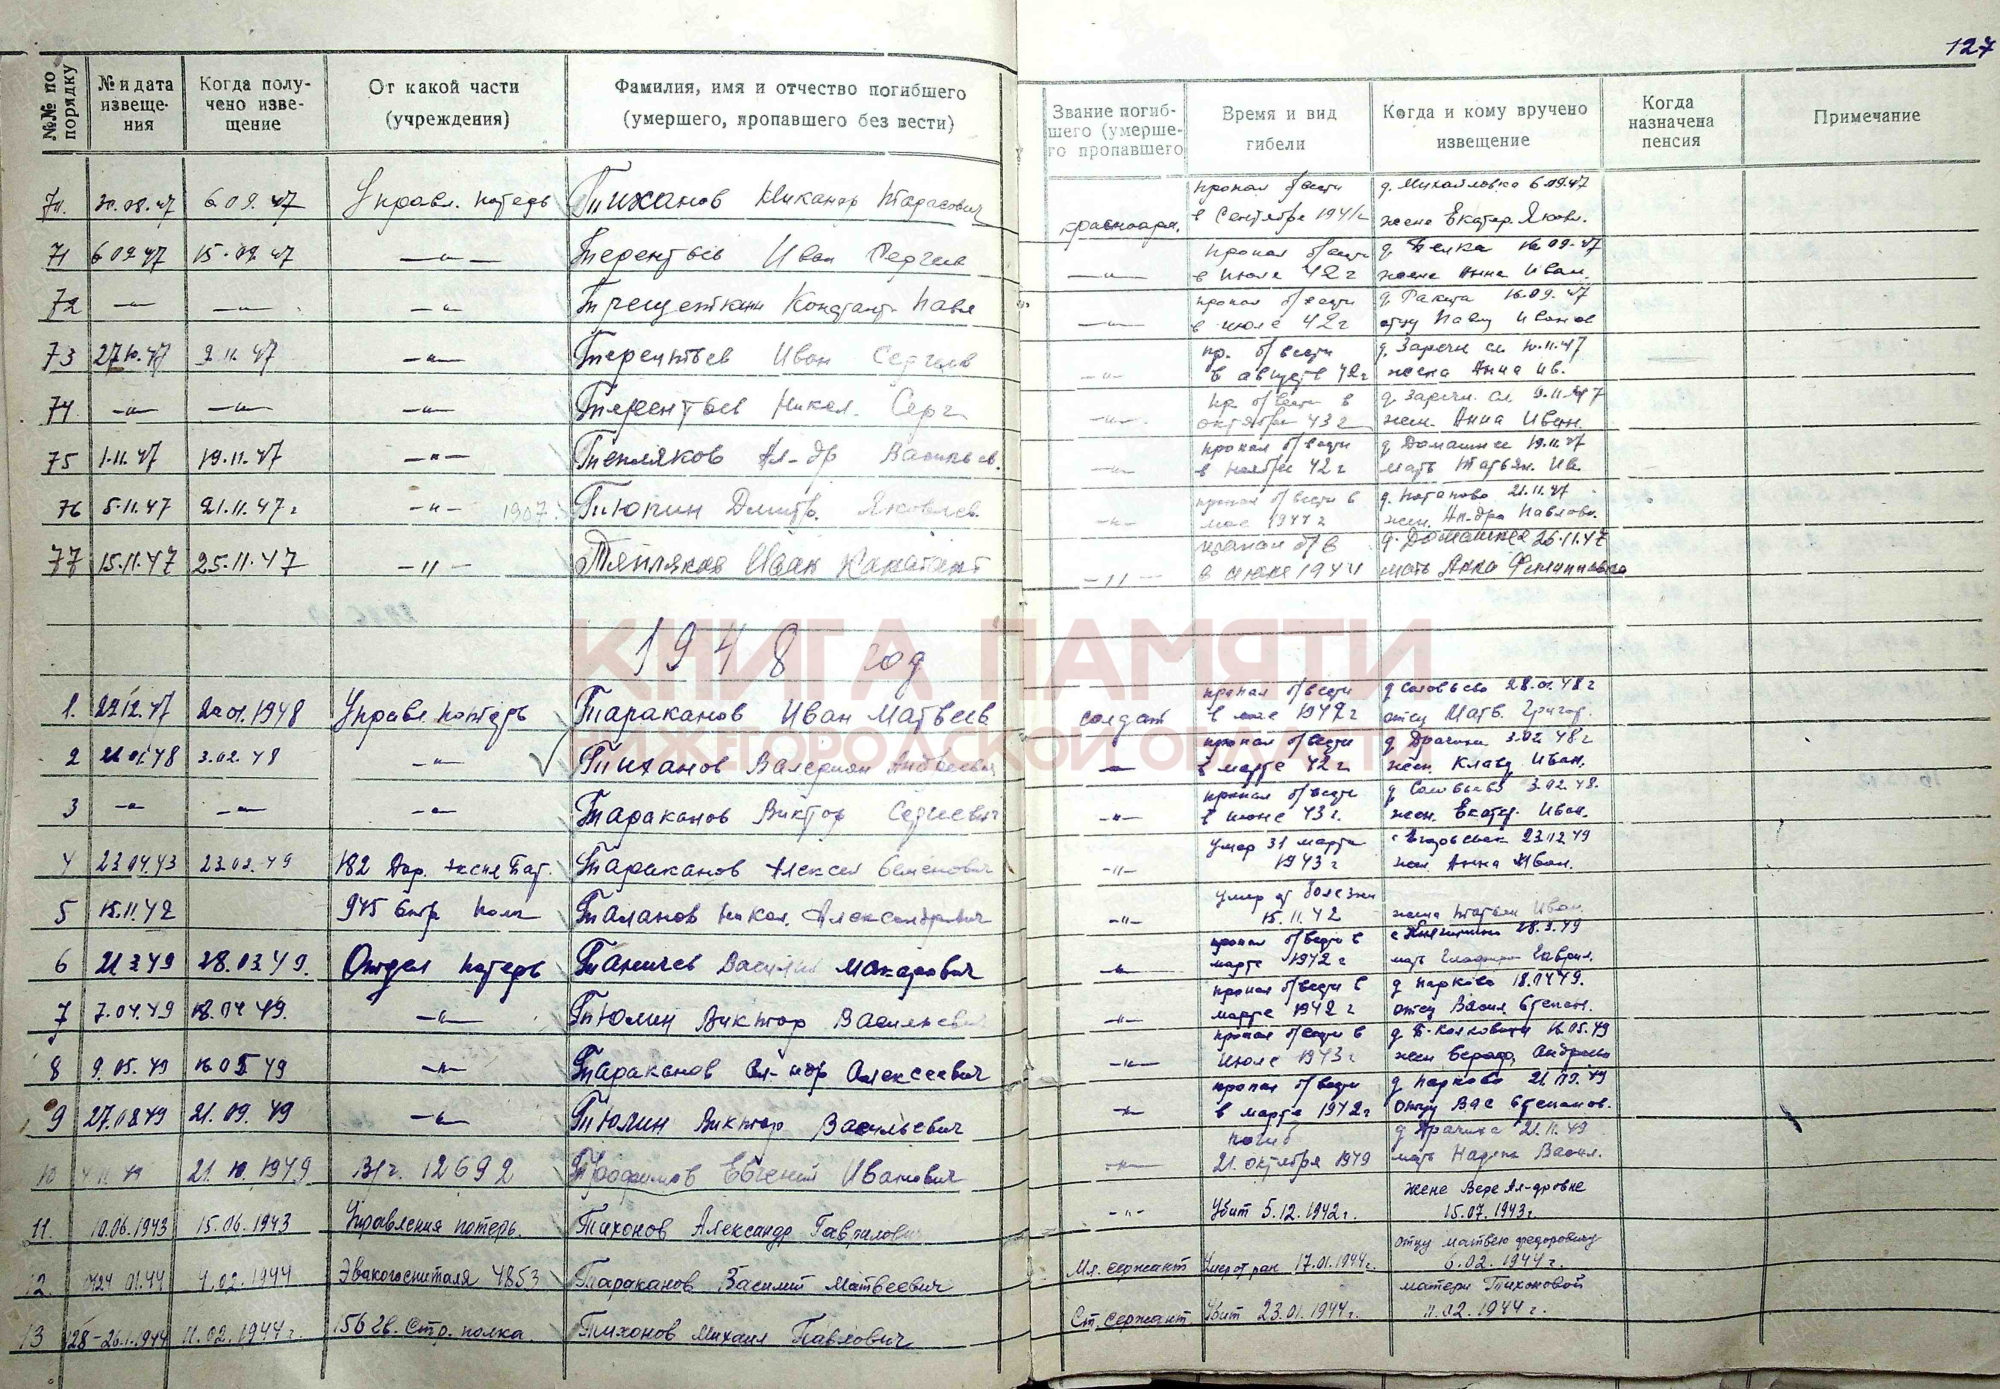 127
№№ по порядку | № и дата извещения | Когда получено извещение | От какой части (учреждения) | Фамилия, имя и отчество погибшего (умершего, пропавшего без вести) | Звание погибшего (умершего пропавшего | Время и вид гибели | Когда и кому вручено извещение | Когда назначена пенсия | Примечание
70. 30.08.47 6.09.47 Управл. потерь Тиханов Никанор Тарасович красноарм. пропал б/вести в Сентябре 1941 г д. Михайловка 6.09.47 жене Екатер. Яковл.
71 6.09.47 15.09.47 —„— Терентьев Иван Сергеев —„— пропал б/вести в июле 42 г 16.09.47 жене Анна Иван.
72 —„— —„— —„— Константин Павл —„— пропал б/вести в июле 42 г д. Ракита 16.09.47 отцу Павлу Иванов
73 27.10.47 9.11.47 —„— Терентьев Иван Сергеев —„— пр. б/вести в августе 42 г д. Заречн сл 10.11.47 жена Анна Ив.
74 —„— —„— —„— Терентьев Никол. Серг. —„— пр. б/вести в октябре 43 г д. Заречн. сл 9.11.47 жен. Анна Иван.
75 1.11.47 19.11.47 —„— Тепляков Ал-др Васильев. —„— пропал б/вести в ноябре 42 г д. Домашнее 19.11.47 мать Татьян. Ив.
76 5.11.47 21.11.47 г —„— 1907. Тюпин Дмитр. Яковлев. —„— пропал б/вести в мае 1944 г д. Потапово 21.11.47 жен. Ал-дра Павлов.
77 15.11.47 25.11.47 —„— Тепляков Иван —„— пропал б/в в июне 1944 д. Домашнее 26.11.47 мать Анна
1948 год
1. 29.12.47 20.01.1948 Управл. потерь Тараканов Иван Матвеев солдат пропал б/вести в мае 1942 г д Соловьево 28.01.48 г отцу Матв. Григор.
2 21.01.48 3.02.48 —„— Тиханов Валериан Андреевич —„— пропал б/вести в марте 42 г д. Драчиха 3.02.48 г жен. Клавд Иван.
3 —„— —„— —„— Тараканов Виктор Сергеевич —„— пропал б/вести в июне 43 г. д Соловьево 3.02.48. жен. Екатер. Иван.
4 23.04.43 23.02.49 182 Дор. эксп Бат. Тараканов Алексей Семенович —„— умер 31 марта 1943 г жен Анна Иван.
5 15.11.42 945 Стр. полк Таланов Никол. Александрович —„— умер от болезни 15.11.42 жена Татьян Иван.
6 21.3.49 28.03.49. Отдел потерь Таничев Василий Макарович —„— пропал б/вести в марте 1942 г с Княгинино 28.3.49 мать Гаврил.
7 7.04.49 18.04.49. —„— Тюлин Виктор Васильевич —„— пропал б/вести в марте 1942 г д Парково 18.04.49. отцу Васил Степан.
8 9.05.49 16.05.49 —„— Тараканов Ал-ндр Алексеевич —„— пропал б/вести в июле 1943 г 16.05.49 жен
9 27.08.49 21.09.49 —„— Тюлин Виктор Васильевич —„— пропал б/вести в марте 1942 г д Парково 21.09.49 отцу Вас Степанов.
10 4.11.49 21.10.1949 В/ч. 12692 Трофимов Евгений Иванович —„— погиб 21. октября 1949 д Драчиха 21.11.49 мать Надежд Васил.
11. 10.06.1943 15.06.1943 Управления потерь. Тихонов Александр Гаврилович —„— Убит 5.12.1942 г. жене Вере Ал-дровне 15.07.1943 г.
12. 01.44 4.02.1944 Эвакогоспиталя 4853 Тараканов Василий Матвеевич Мл. сержант Умер от ран 17.01.1944 г. отцу Матвею Федоровичу 6.02.1944 г.
13 128-26.1.1944 11.02.1944 г. 156 гв. Стр. полка. Тихонов Михаил Павлович Ст. сержант Убит 23.01.1944 г. матери Тихоновой 11.02.1944 г.
КНИГА ПАМЯТИ
НИЖЕГОРОДСКОЙ ОБЛАСТИ